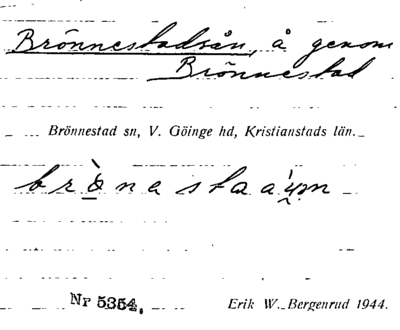 Brönnestadsån, å genom
Brönnestad
Brönnestad sn, V. Göinge hd, Kristianstads län.
Nr 5354.
Erik W. Bergenrud 1944.